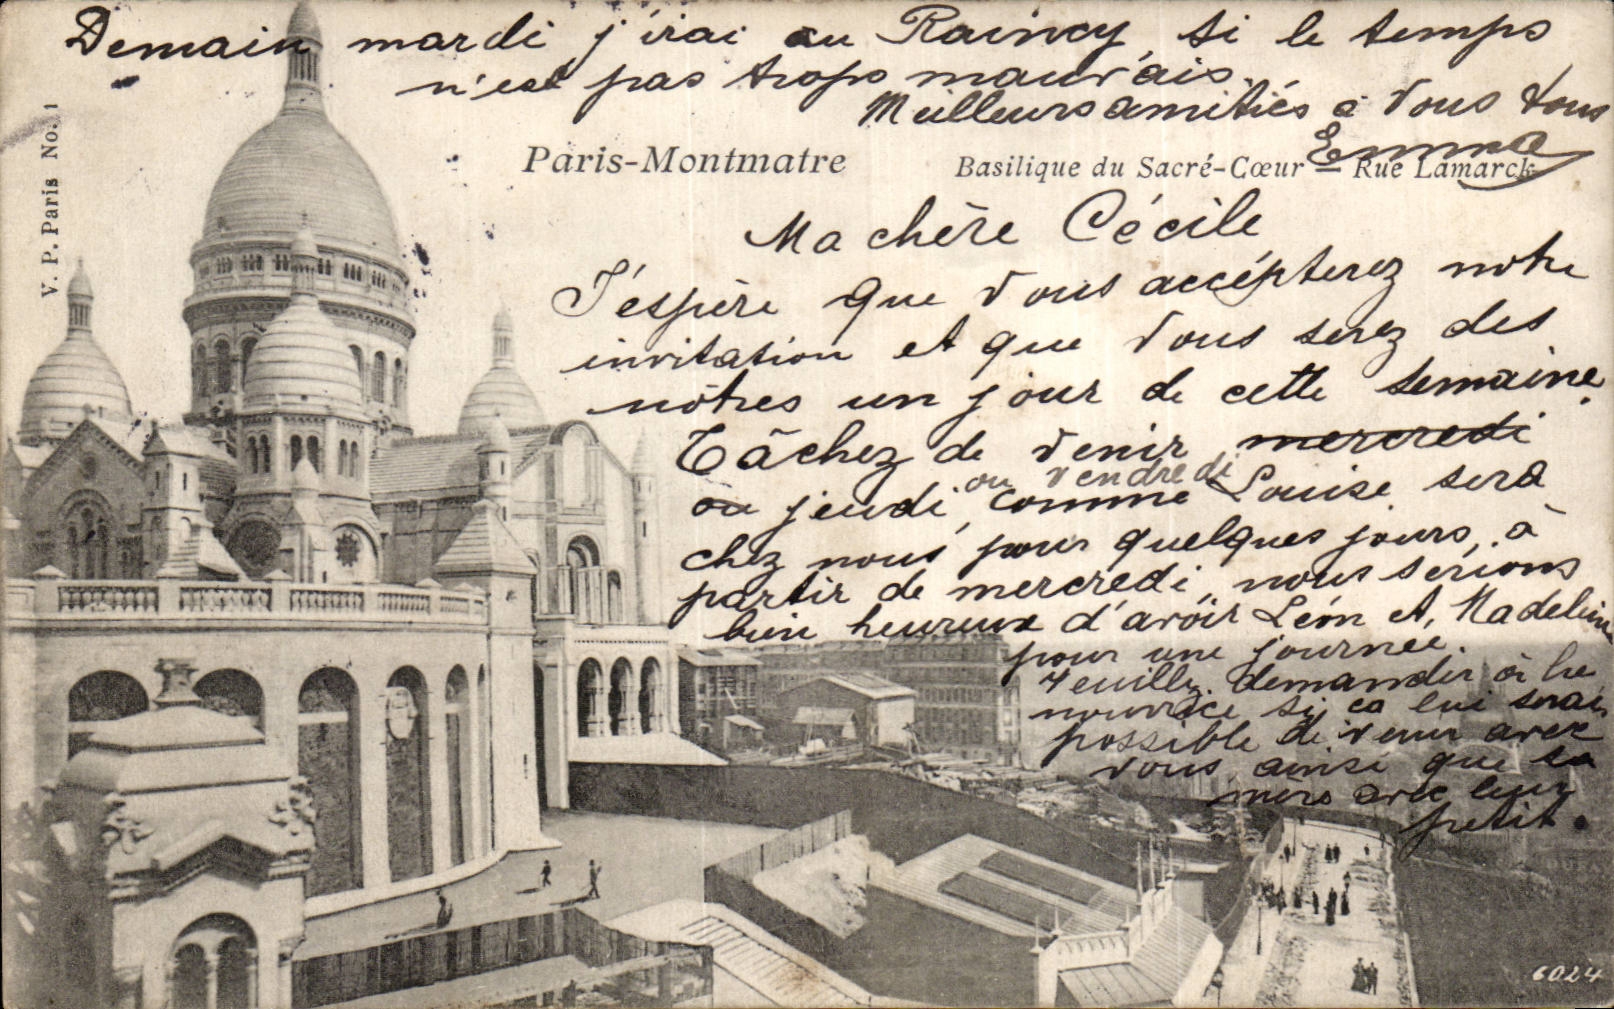 Demain mardi j'irai au Raincy, si le temps
n'est pas trops mauvais.
Meilleurs amitiés à Vous tous
Emma
V. P. Paris No. 1
Paris-Montmatre
Basilique du Sacré-Cœur — Rue Lamarck
Ma chère Cécile
J'espère que Vous accépterez notre
invitation et que Vous serez des
nôtres un jour de cette semaine.
Tâchez de venir mercredi
ou jeudi, ou vendredi comme Louise sera
chez nous pour quelques jours, à
partir de mercredi, nous serions
bien heureux d'avoir Léon et Madeleine
pour une journée.
Veuillez demander à la
nourrice si ça lui serait
possible de venir avec
vous ainsi que sa
mère avec leur
petit.
6024